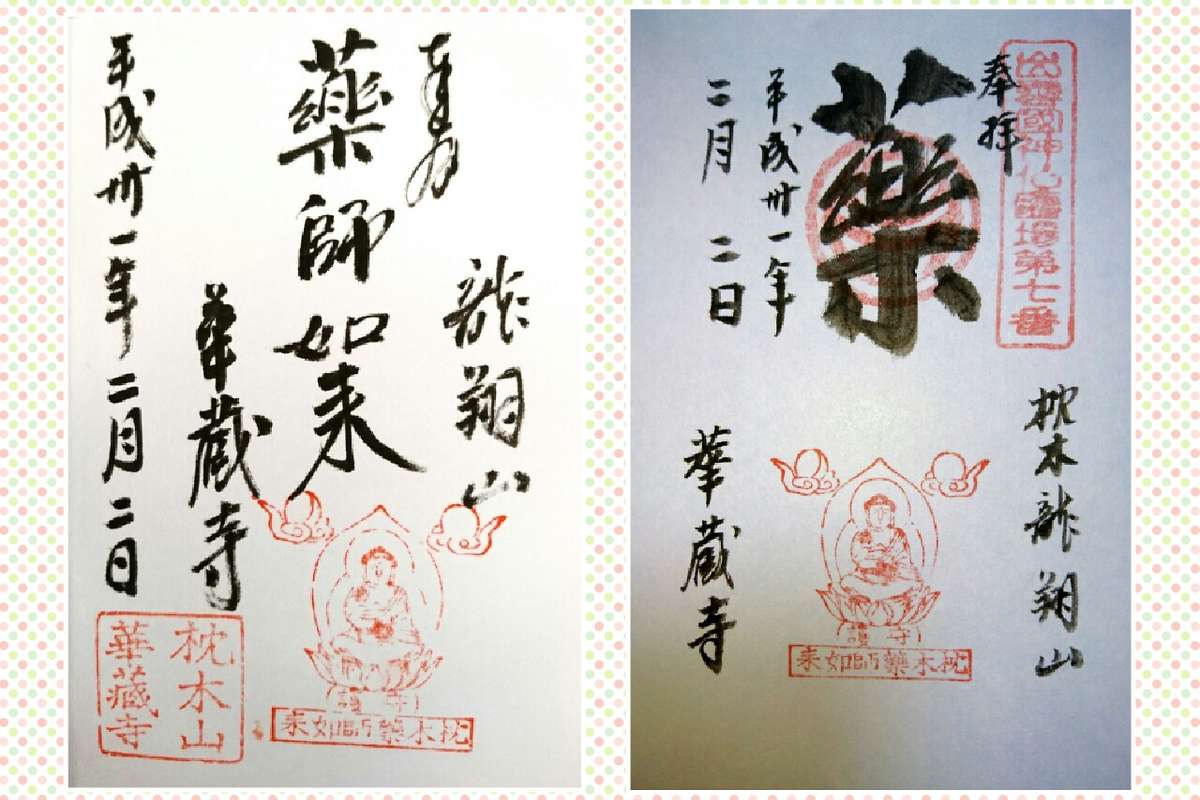 龍翔山
藥師如来
華蔵寺
平成卅一年二月二日
守護
枕木藥師如来
枕木山
華藏寺
出雲國神仏霊場第七番
奉拝
枕木龍翔山
藥
平成卅一年
二月二日
華蔵寺
守護
枕木藥師如来